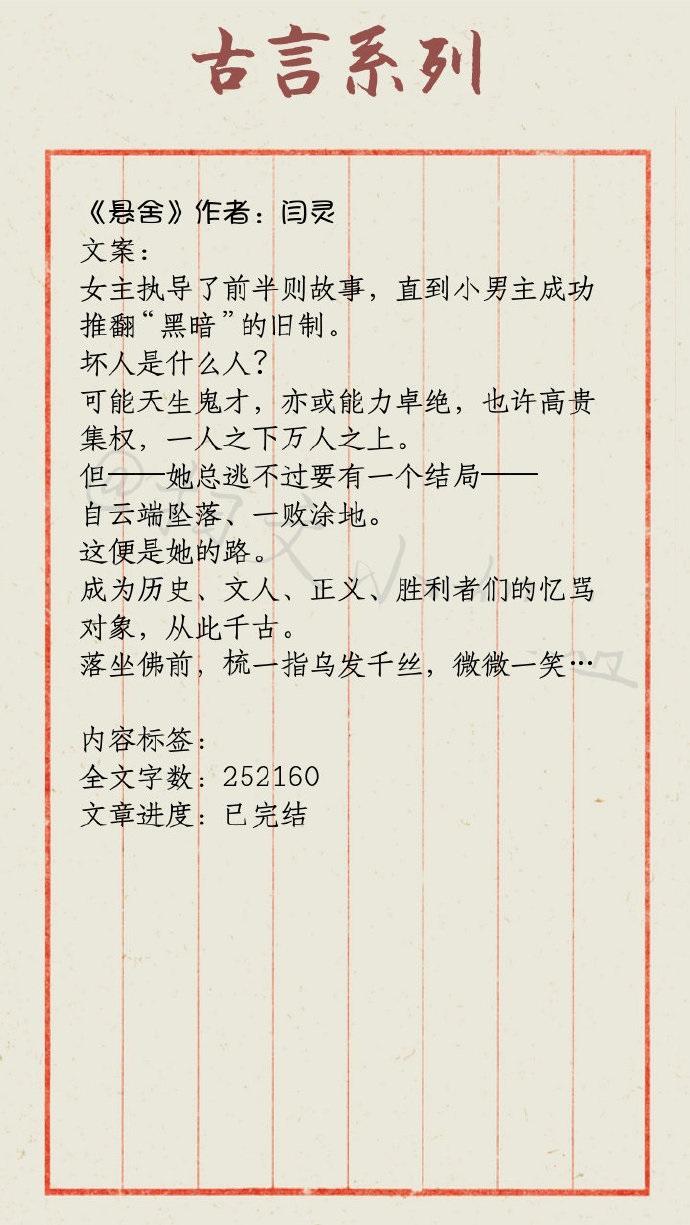 古言系列
《悬舍》作者：闫灵
文案：
女主执导了前半则故事，直到小男主成功
推翻“黑暗”的旧制。
坏人是什么人？
可能天生鬼才，亦或能力卓绝，也许高贵
集权，一人之下万人之上。
但——她总逃不过要有一个结局——
自云端坠落、一败涂地。
这便是她的路。
成为历史、文人、正义、胜利者们的忆骂
对象，从此千古。
落坐佛前，梳一指乌发千丝，微微一笑…
内容标签：
全文字数：252160
文章进度：已完结